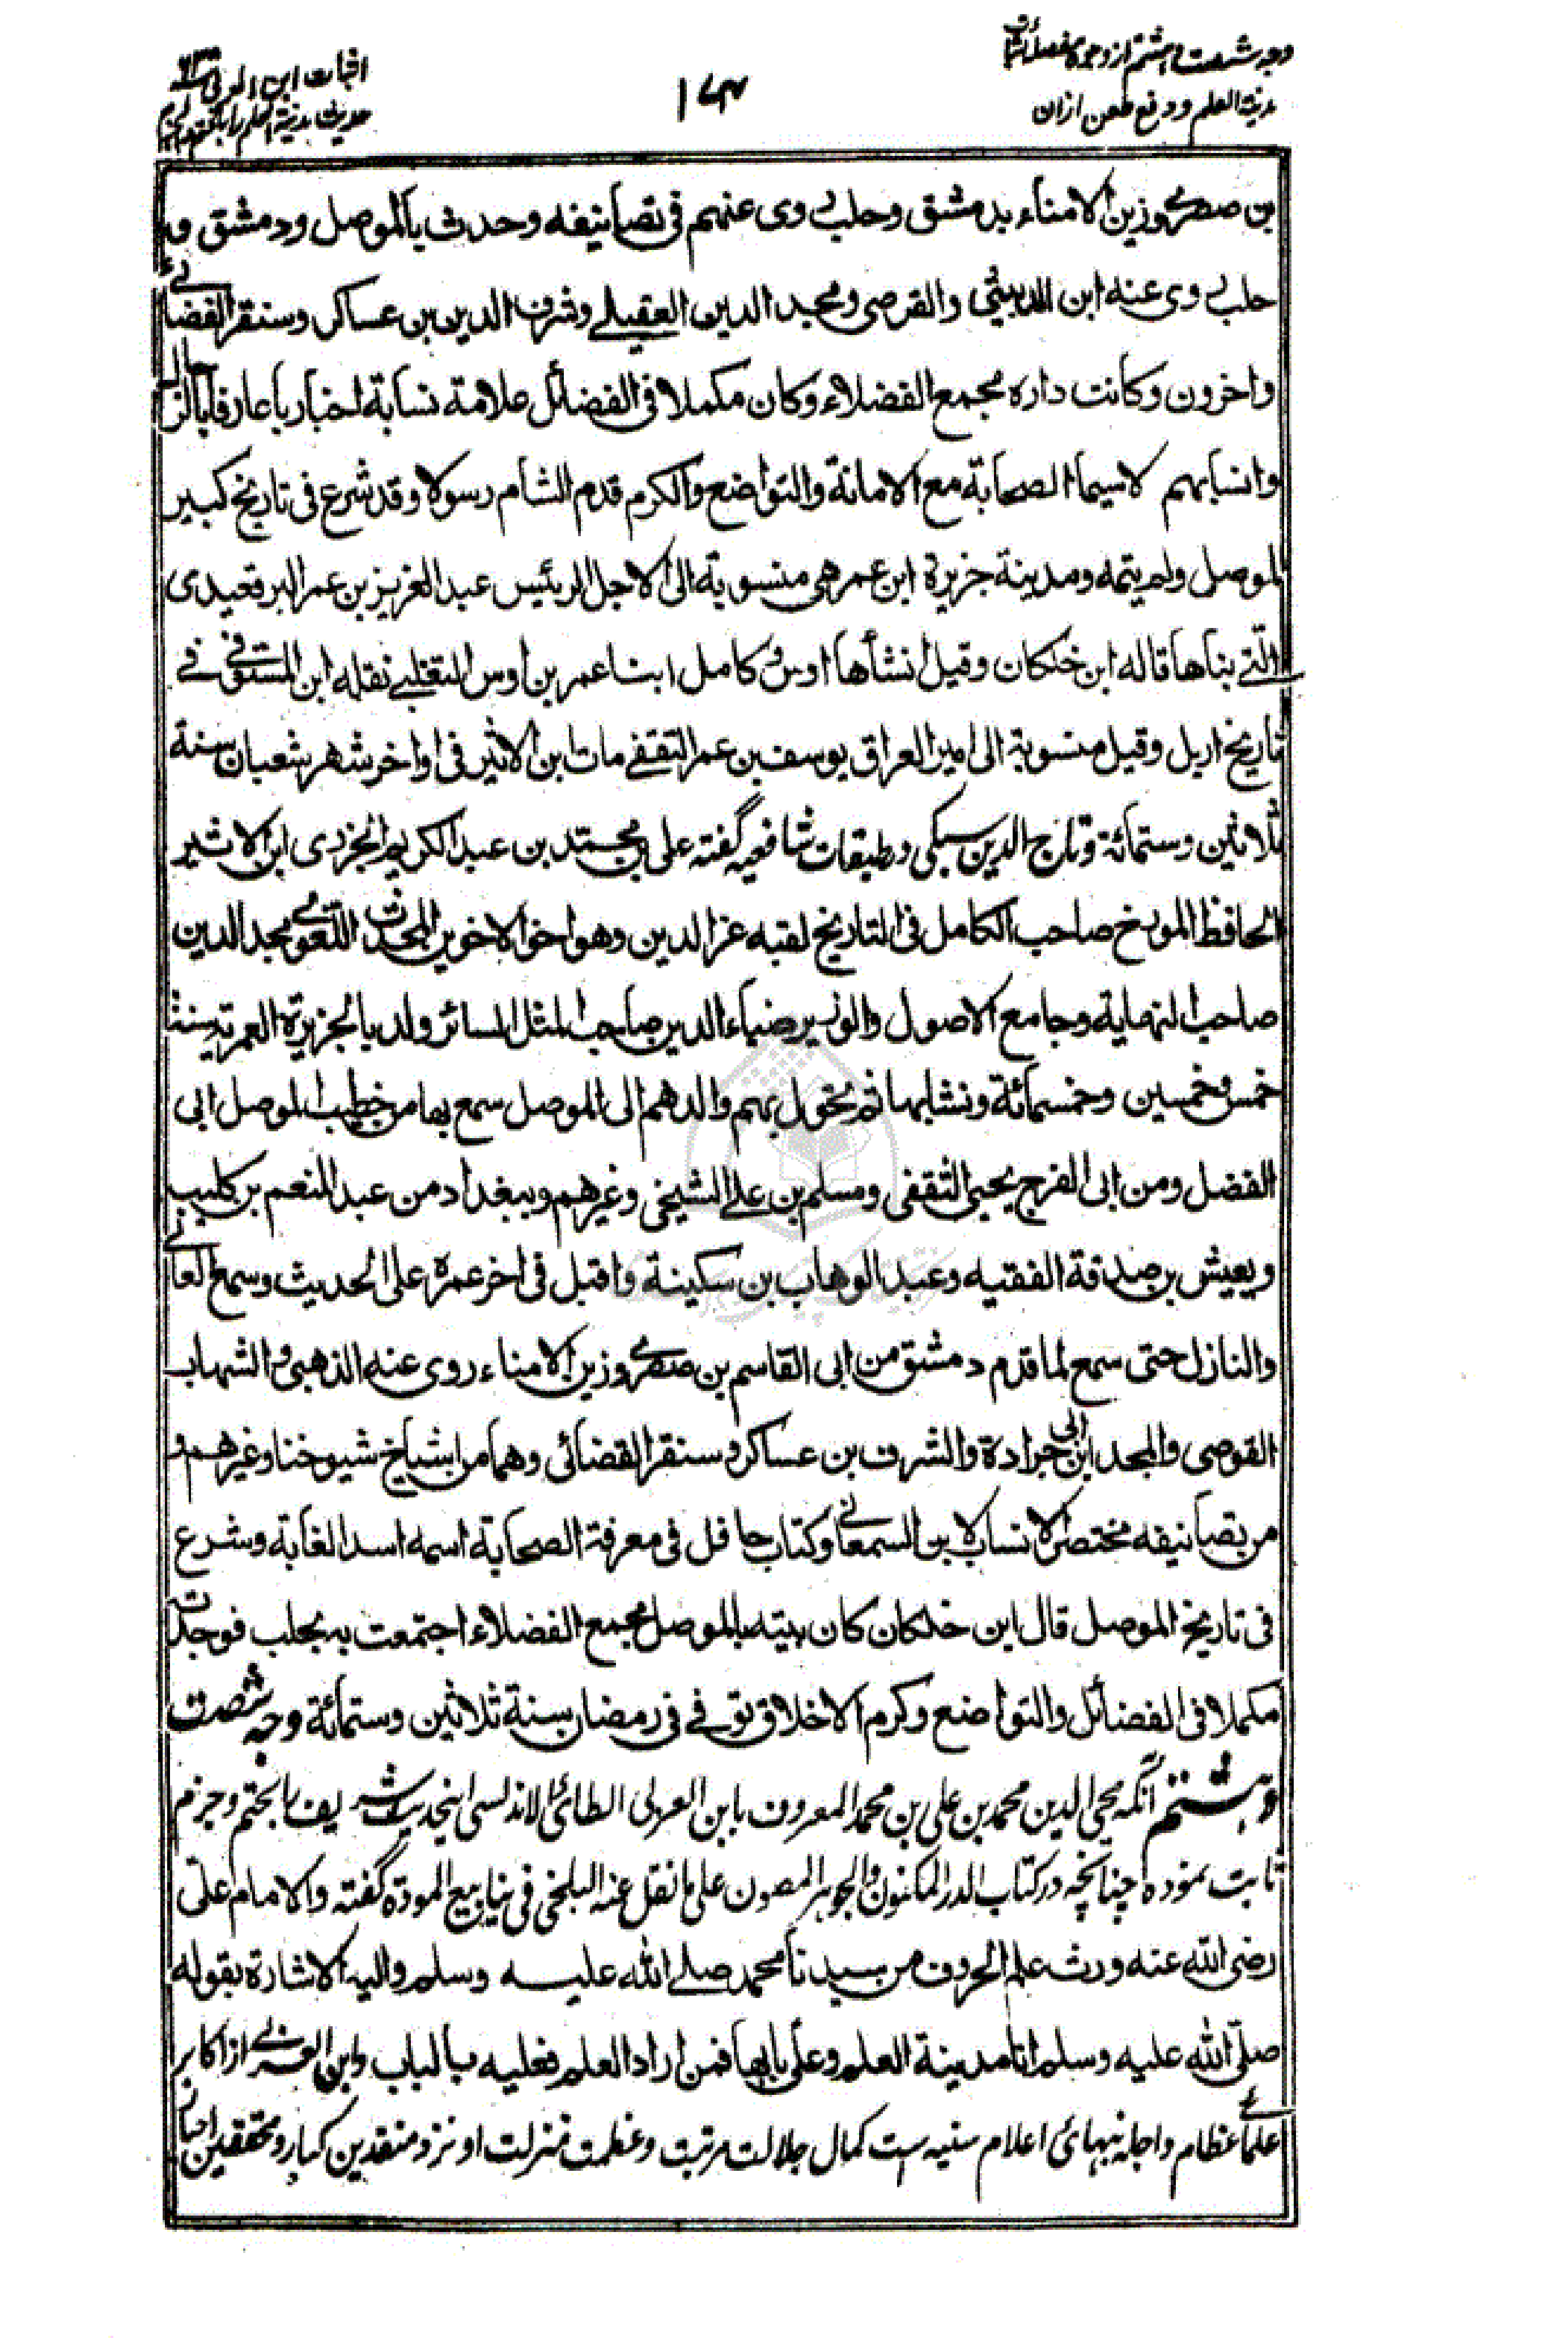 وجه شصت و هشتم از وجوه مفصله اثبات
مدینة العلم و دفع طعن ازان
۱۷۴
اثبات ابن العربی
حدیث مدینة العلم را بالحتم والجزم
بن صصرى وزين الامناء بدمشق وحلب روى عنهم فى تصانيفه وحدث بالموصل ودمشق و
حلب روى عنه ابن الدبيثى والقوصى ومجد الدين العقيلے وشرف الدين بن عساكر وسنقر القضائے
واخرون وكانت داره مجمع الفضلاء وكان مكملا فى الفضائل علامة نسابة اخباريا عارفا بالرجال
وانسابهم لاسيما الصحابة مع الامانة والتواضع والكرم قدم الشام رسولا وقد شرع فى تاريخ كبير
لموصل ولم يتمه ومدينة جزيرة ابن عمر هى منسوبة الى الاجل الرئيس عبد العزيز بن عمر البرقعيدى
التے بناها قاله ابن خلكان وقيل انشأها اوس وكامل ابنا عمر بن اوس التغلبے نقله ابن المستوفى فے
تاريخ اربل وقيل منسوبة الى امير العراق يوسف بن عمر الثقفے مات ابن الاثير فى اواخر شهر شعبان سنة
ثلاثين وستمائة وتاج الدين سبكى در طبقات شافعيه گفته على بن محمد بن عبد الكريم الجزرى ابن الاثير
الحافظ المورخ صاحب الكامل فى التاريخ لقبه عز الدين وهو اخو الاخوين المحدث اللغوى مجد الدين
صاحب النهاية وجامع الاصول والوزير ضياء الدين صاحب المثل السائر ولد بالجزيرة العمرية سنة
خمس وخمسين وخمسمائة ونشا بها ثم تحول بهم والدهم الى الموصل سمع بها من خطيب الموصل ابى
الفضل ومن ابى الفرج يحيى الثقفى ومسلم بن علے الشيخى وغيرهم وببغداد من عبد المنعم بن كليب
ويعيش بن صدقة الفقيه وعبد الوهاب بن سكينة واقبل فى اخر عمره على الحديث وسمع العالى
والنازل حتى سمع لما قدم دمشق من ابى القاسم بن صصرى وزين الامناء روى عنه الذهبى والشهاب
القوصى والمجد ابن ابى جرادة والشرف بن عساكر وسنقر القضائى وهما من اشياخ شيوخنا وغيرهم و
من تصانيفه مختصر الانساب لابن السمعانے وكتاب حافل فى معرفة الصحابة اسمه اسد الغابة وشرع
فى تاريخ الموصل قال ابن خلكان كان بيته بالموصل مجمع الفضلاء اجتمعت به بحلب فوجدته
مكملا فى الفضائل والتواضع وكرم الاخلاق توفے فى رمضان سنة ثلاثين وستمائة وجه شصت
وهشتم آنكه محى الدين محمد بن على بن محمد المعروف بابن العربى الطائى الاندلسى اينحديث شريف را بحتم وجزم
ثابت نموده چنانچه در كتاب الدر المكنون والجوهر المصون على ما نقل عنه البلخى فى ينابيع المودة گفته والامام علىّ
رضى الله عنه ورث علم الحروف من سيدنا محمد صلے الله عليه وسلم واليه الاشارة بقوله
صلّى الله عليه وسلم انا مدينة العلم وعلى بابها فمن اراد العلم فعليه بالباب وابن العربے از اكابر
علماے عظام واجله نبهاى اعلام سنيه ست كمال جلالت مرتبت وعظمت منزلت او نزد منقدين كبار ومحققين احبار